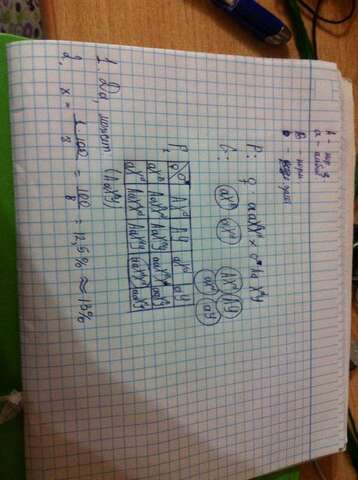 А – нор.
а – альб.
В – норм.
P: ♀ aaXᴮXᵇ × ♂ Aa XᴮY
G: aXᴮ aXᵇ AXᴮ AY aXᴮ aY
F₁
♀ ♂ AXᴮ AY aXᴮ aY
aXᴮ AaXᴮXᴮ AaXᴮY aaXᴮXᴮ aaXᴮY
aXᵇ AaXᴮXᵇ AaXᵇY aaXᴮXᵇ aaXᵇY
1. Да, может (AaXᵇY)
2. x = 1·100 / 8 = 100 / 8 = 12,5% ≈ 13%